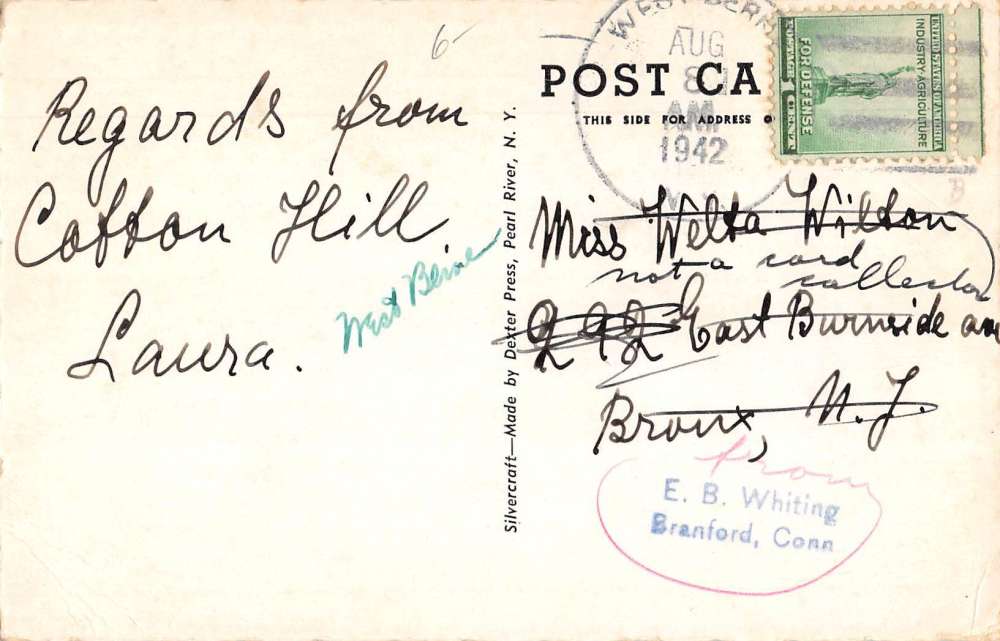 6-
Regards from
Cotton Hill.
Laura.
West Berne
Silvercraft—Made by Dexter Press, Pearl River, N. Y.
POST CA
THIS SIDE FOR ADDRESS O
WEST BERN
AUG
8
AM
1942
UNITED STATES OF AMERICA
INDUSTRY·AGRICULTURE
FOR DEFENSE
POSTAGE 1 CENT
Miss Welta Wilton
not a card
collector
East Burnside ave
Bronx, N.Y.
from
E. B. Whiting
Branford, Conn